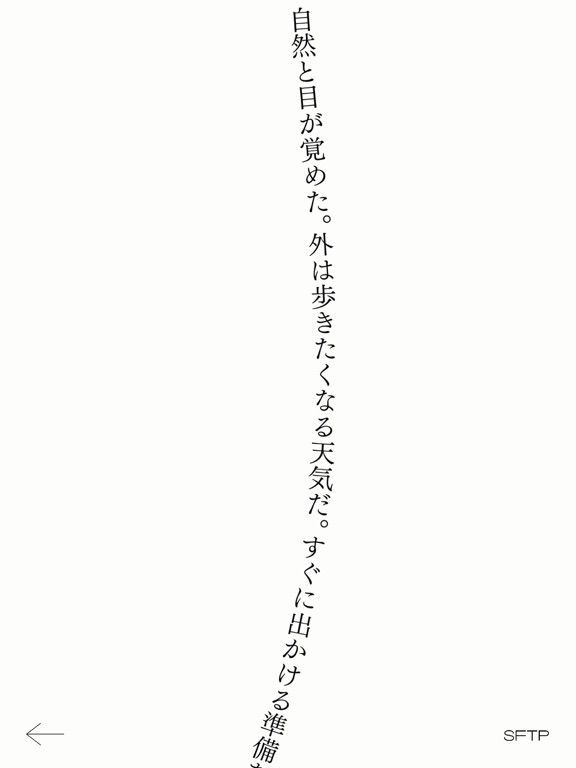 自然と目が覚めた。外は歩きたくなる天気だ。すぐに出かける準備
SFTP